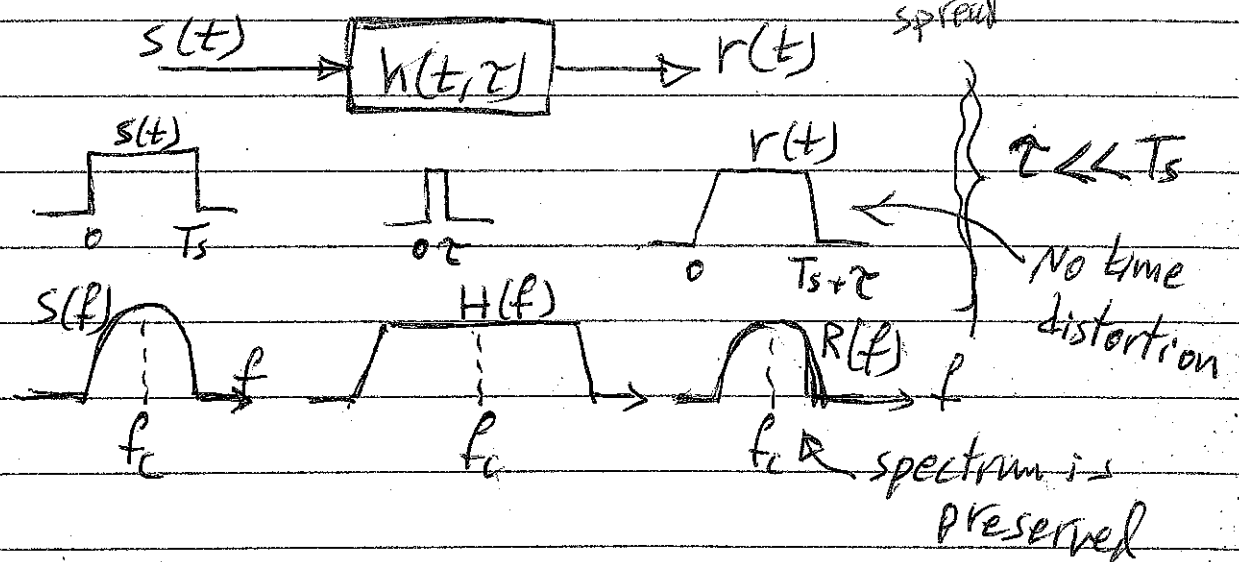 spread
s(t) h(t, τ) r(t)
s(t) r(t) τ << Ts
0 Ts 0 τ 0 Ts+τ
No time
distortion
S(f) f H(f) R(f) f
fc fc fc
spectrum is
preserved